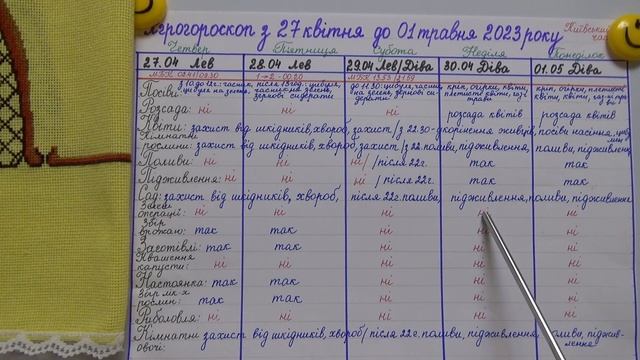 Агрогороскоп з 27 квітня до 01 травня 2023 року
Київський час
Четвер П'ятниця Субота Неділя Понеділок
27.04 Лев 28.04 Лев 29.04 Лев/Діва 30.04 Діва 01.05 Діва
Посіви: кріп, огірки, квіти, кріп, огірки, плетисте
Розсада: ні ні ні розсада квітів розсада квітів
Квіти: захист від шкідників, хвороб, захист/з 22.30-укорінення живців, посіви насіння,
Кімнатні
рослини: захист від шкідників, хвороб, захист/з 22 поливи, підживлення, поливи, підживлення
Поливи: ні ні ні/після 22г. так так
Підживлення: ні ні ні/після 22г. так так
Сад: захист від шкідників, хвороб, після 22г. поливи, підживлення, поливи, підживлення
операції: ні ні ні ні ні
Збір
врожаю: так так ні ні ні
Заготівлі: так так ні ні ні
Квашення
капусти: ні ні ні ні ні
Настоянка: так так ні ні ні
Збір лік-х
рослин: так так ні ні ні
Риболовля: ні ні ні ні ні
Кімнатні захист від шкідників, хвороб/після 22г. поливи, підживлення, поливи, піджив-
овочі: лення